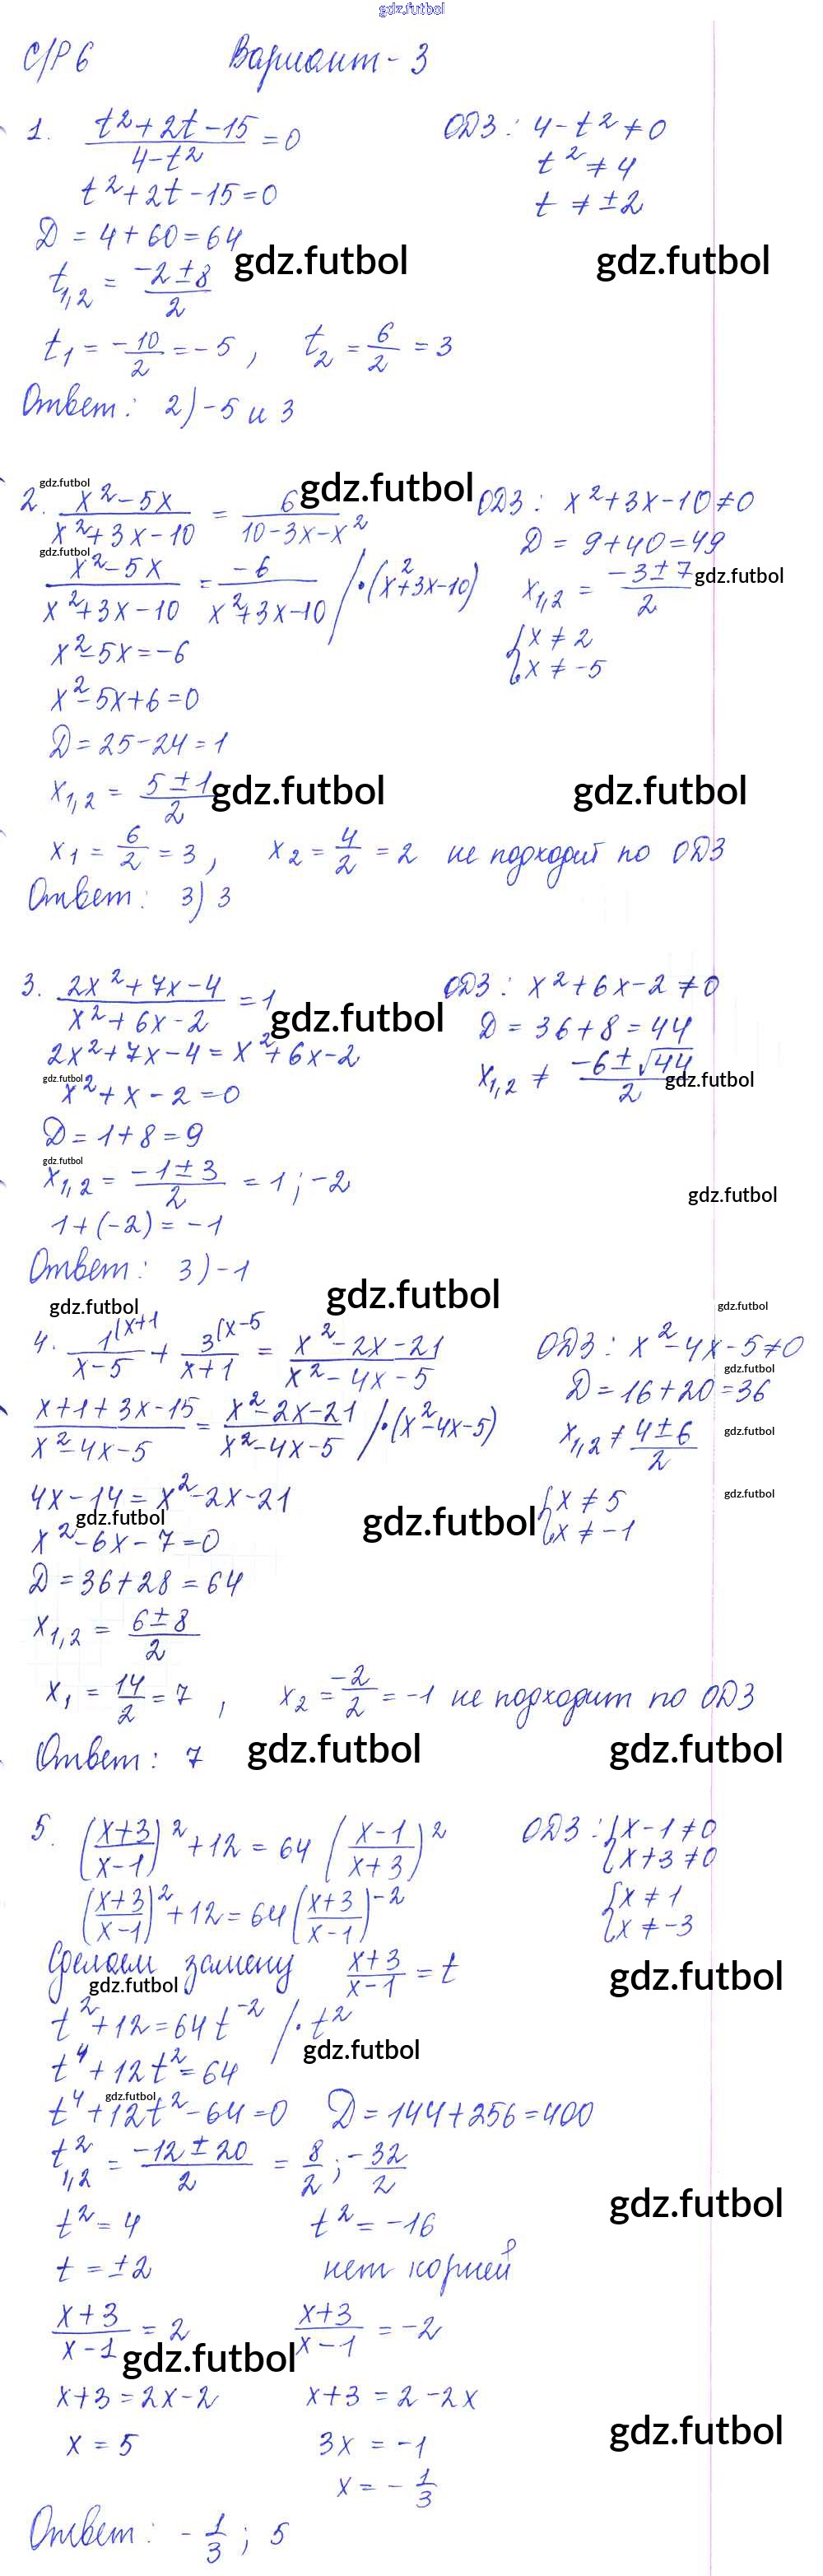 gdz.futbol
С/Р 6 Вариант - 3
1. (t²+2t-15)/(4-t²) = 0 ОДЗ: 4-t² ≠ 0
t² ≠ 4
t²+2t-15=0
t ≠ ±2
D = 4+60=64
gdz.futbol gdz.futbol
t₁,₂ = (-2±8)/2
t₁ = -10/2 = -5, t₂ = 6/2 = 3
Ответ: 2) -5 и 3
gdz.futbol gdz.futbol
2. (x²-5x)/(x²+3x-10) = 6/(10-3x-x²) ОДЗ: x²+3x-10≠0
D = 9+40=49
gdz.futbol
(x²-5x)/(x²+3x-10) = -6/(x²+3x-10) /·(x²+3x-10) x₁,₂ = (-3±7)/2 gdz.futbol
x²-5x=-6 {x ≠ 2
{x ≠ -5
x²-5x+6=0
D=25-24=1
x₁,₂ = (5±1)/2 gdz.futbol gdz.futbol
x₁ = 6/2 = 3, x₂ = 4/2 = 2 не подходит по ОДЗ
Ответ: 3) 3
3. (2x²+7x-4)/(x²+6x-2) = 1 ОДЗ: x²+6x-2 ≠ 0
gdz.futbol
D = 36+8=44
2x²+7x-4 = x²+6x-2
x₁,₂ ≠ (-6±√44)/2 gdz.futbol
gdz.futbol
x²+x-2=0
D=1+8=9
gdz.futbol
x₁,₂ = (-1±3)/2 = 1; -2 gdz.futbol
1+(-2)=-1
Ответ: 3) -1
gdz.futbol gdz.futbol gdz.futbol
4. 1^(x+1/(x-5) + 3^(x-5/(x+1) = (x²-2x-21)/(x²-4x-5) ОДЗ: x²-4x-5≠0
gdz.futbol
D=16+20=36
(x+1+3x-15)/(x²-4x-5) = (x²-2x-21)/(x²-4x-5) /·(x²-4x-5) x₁,₂ ≠ (4±6)/2 gdz.futbol
4x-14=x²-2x-21 {x ≠ 5 gdz.futbol
gdz.futbol gdz.futbol {x ≠ -1
x²-6x-7=0
D=36+28=64
x₁,₂ = (6±8)/2
x₁ = 14/2 = 7, x₂ = -2/2 = -1 не подходит по ОДЗ
Ответ: 7 gdz.futbol gdz.futbol
5. ((x+3)/(x-1))² + 12 = 64 ((x-1)/(x+3))² ОДЗ: {x-1≠0
{x+3≠0
((x+3)/(x-1))² + 12 = 64 ((x+3)/(x-1))⁻² {x ≠ 1
{x ≠ -3
Сделаем замену (x+3)/(x-1) = t
gdz.futbol gdz.futbol
t²+12=64t⁻² /·t²
gdz.futbol
t⁴+12t²=64
gdz.futbol
t⁴+12t²-64=0 D=144+256=400
t²₁,₂ = (-12±20)/2 = 8/2; -32/2
gdz.futbol
t²=4 t²=-16
t=±2 нет корней
(x+3)/(x-1) = 2 (x+3)/(x-1) = -2
gdz.futbol
x+3=2x-2 x+3=2-2x
gdz.futbol
x=5 3x=-1
x=-1/3
Ответ: -1/3; 5